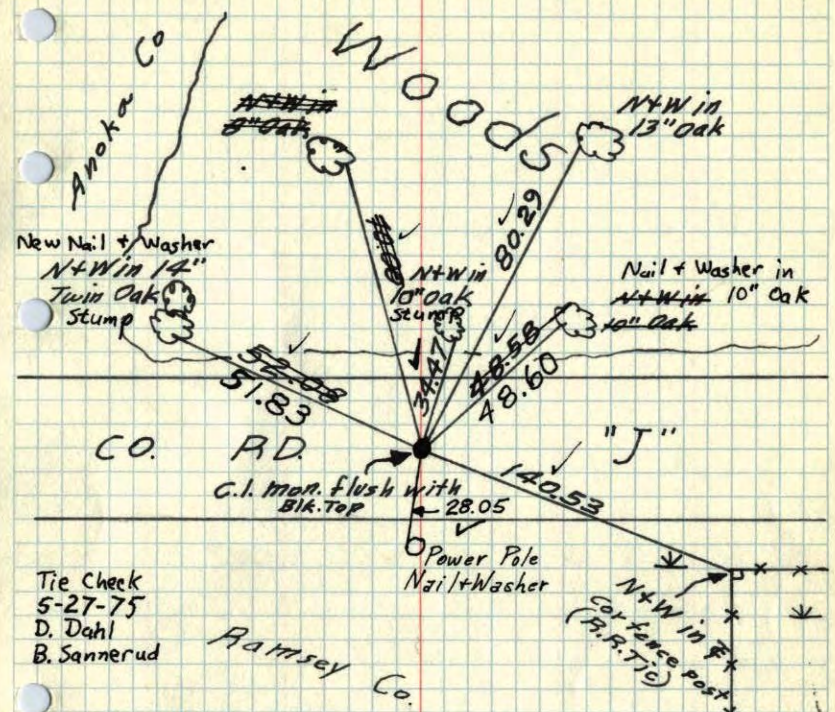 Anoka Co
Woods
N+W in
8" Oak
N+W in
13" Oak
New Nail + Washer
N+W in 14"
Twin Oak
Stump
N+W in
10" Oak
Stump
80.29
Nail + Washer in
N+W in 10" Oak
10" Oak
34.47
52.08
51.83
48.58
48.60
CO. RD. "J"
C.I. mon. flush with
Blk. Top
28.05
140.53
Power Pole
Nail + Washer
N+W in
cor fence post
(R.R. Tie)
Tie Check
5-27-75
D. Dahl
B. Sannerud
Ramsey Co.